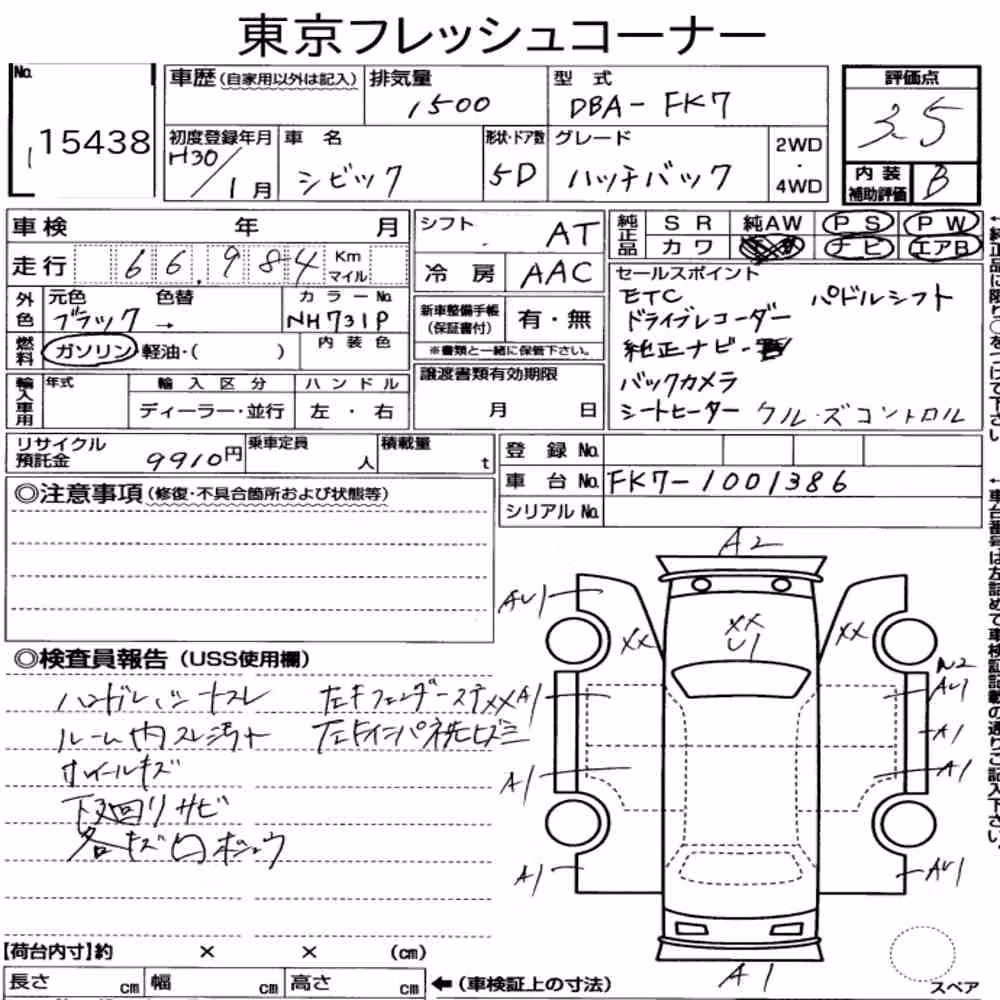 東京フレッシュコーナー
No. 15438
車歴(自家用以外は記入)
排気量 1500
型式 DBA-FK7
評価点 3.5
初度登録年月 H30/1月
車名 シビック
形状・ドア数 5D
グレード ハッチバック
2WD・4WD
内装補助評価 B
車検 年 月
シフト AT
純正品 SR 純AW PS PW
カワ ナビ エアB
走行 66,984 Km マイル
冷房 AAC
外色 元色 ブラック 色替 → カラーNo. NH731P
新車整備手帳(保証書付) 有・無
※書類と一緒に保管下さい。
燃料 ガソリン・軽油・( ) 内装色
セールスポイント
ETC パドルシフト
ドライブレコーダー
純正ナビ
バックカメラ
シートヒーター クルーズコントロル
輸入車用 年式 輸入区分 ハンドル
ディーラー・並行 左・右
譲渡書類有効期限
月 日
リサイクル預託金 9910円
乗車定員 人
積載量 t
登録No.
車台No. FK7-1001386
シリアルNo.
◎注意事項(修復・不具合箇所および状態等)
◎検査員報告(USS使用欄)
ハンドル シートスレ
ルーム内スレ汚れ
ホイールキズ
下回りサビ
各キズ凹ボコウ
A2
AU1
XX
XX
U1
XX
A1
A2
AU1
A1
A1
A1
A1
AU1
A1
スペア
【荷台内寸】約 × × (cm)
長さ cm 幅 cm 高さ cm ←(車検証上の寸法)
←純正品に限り○をつけて下さい
←車台番号は左詰めで車検証記載の通りご記入下さい。